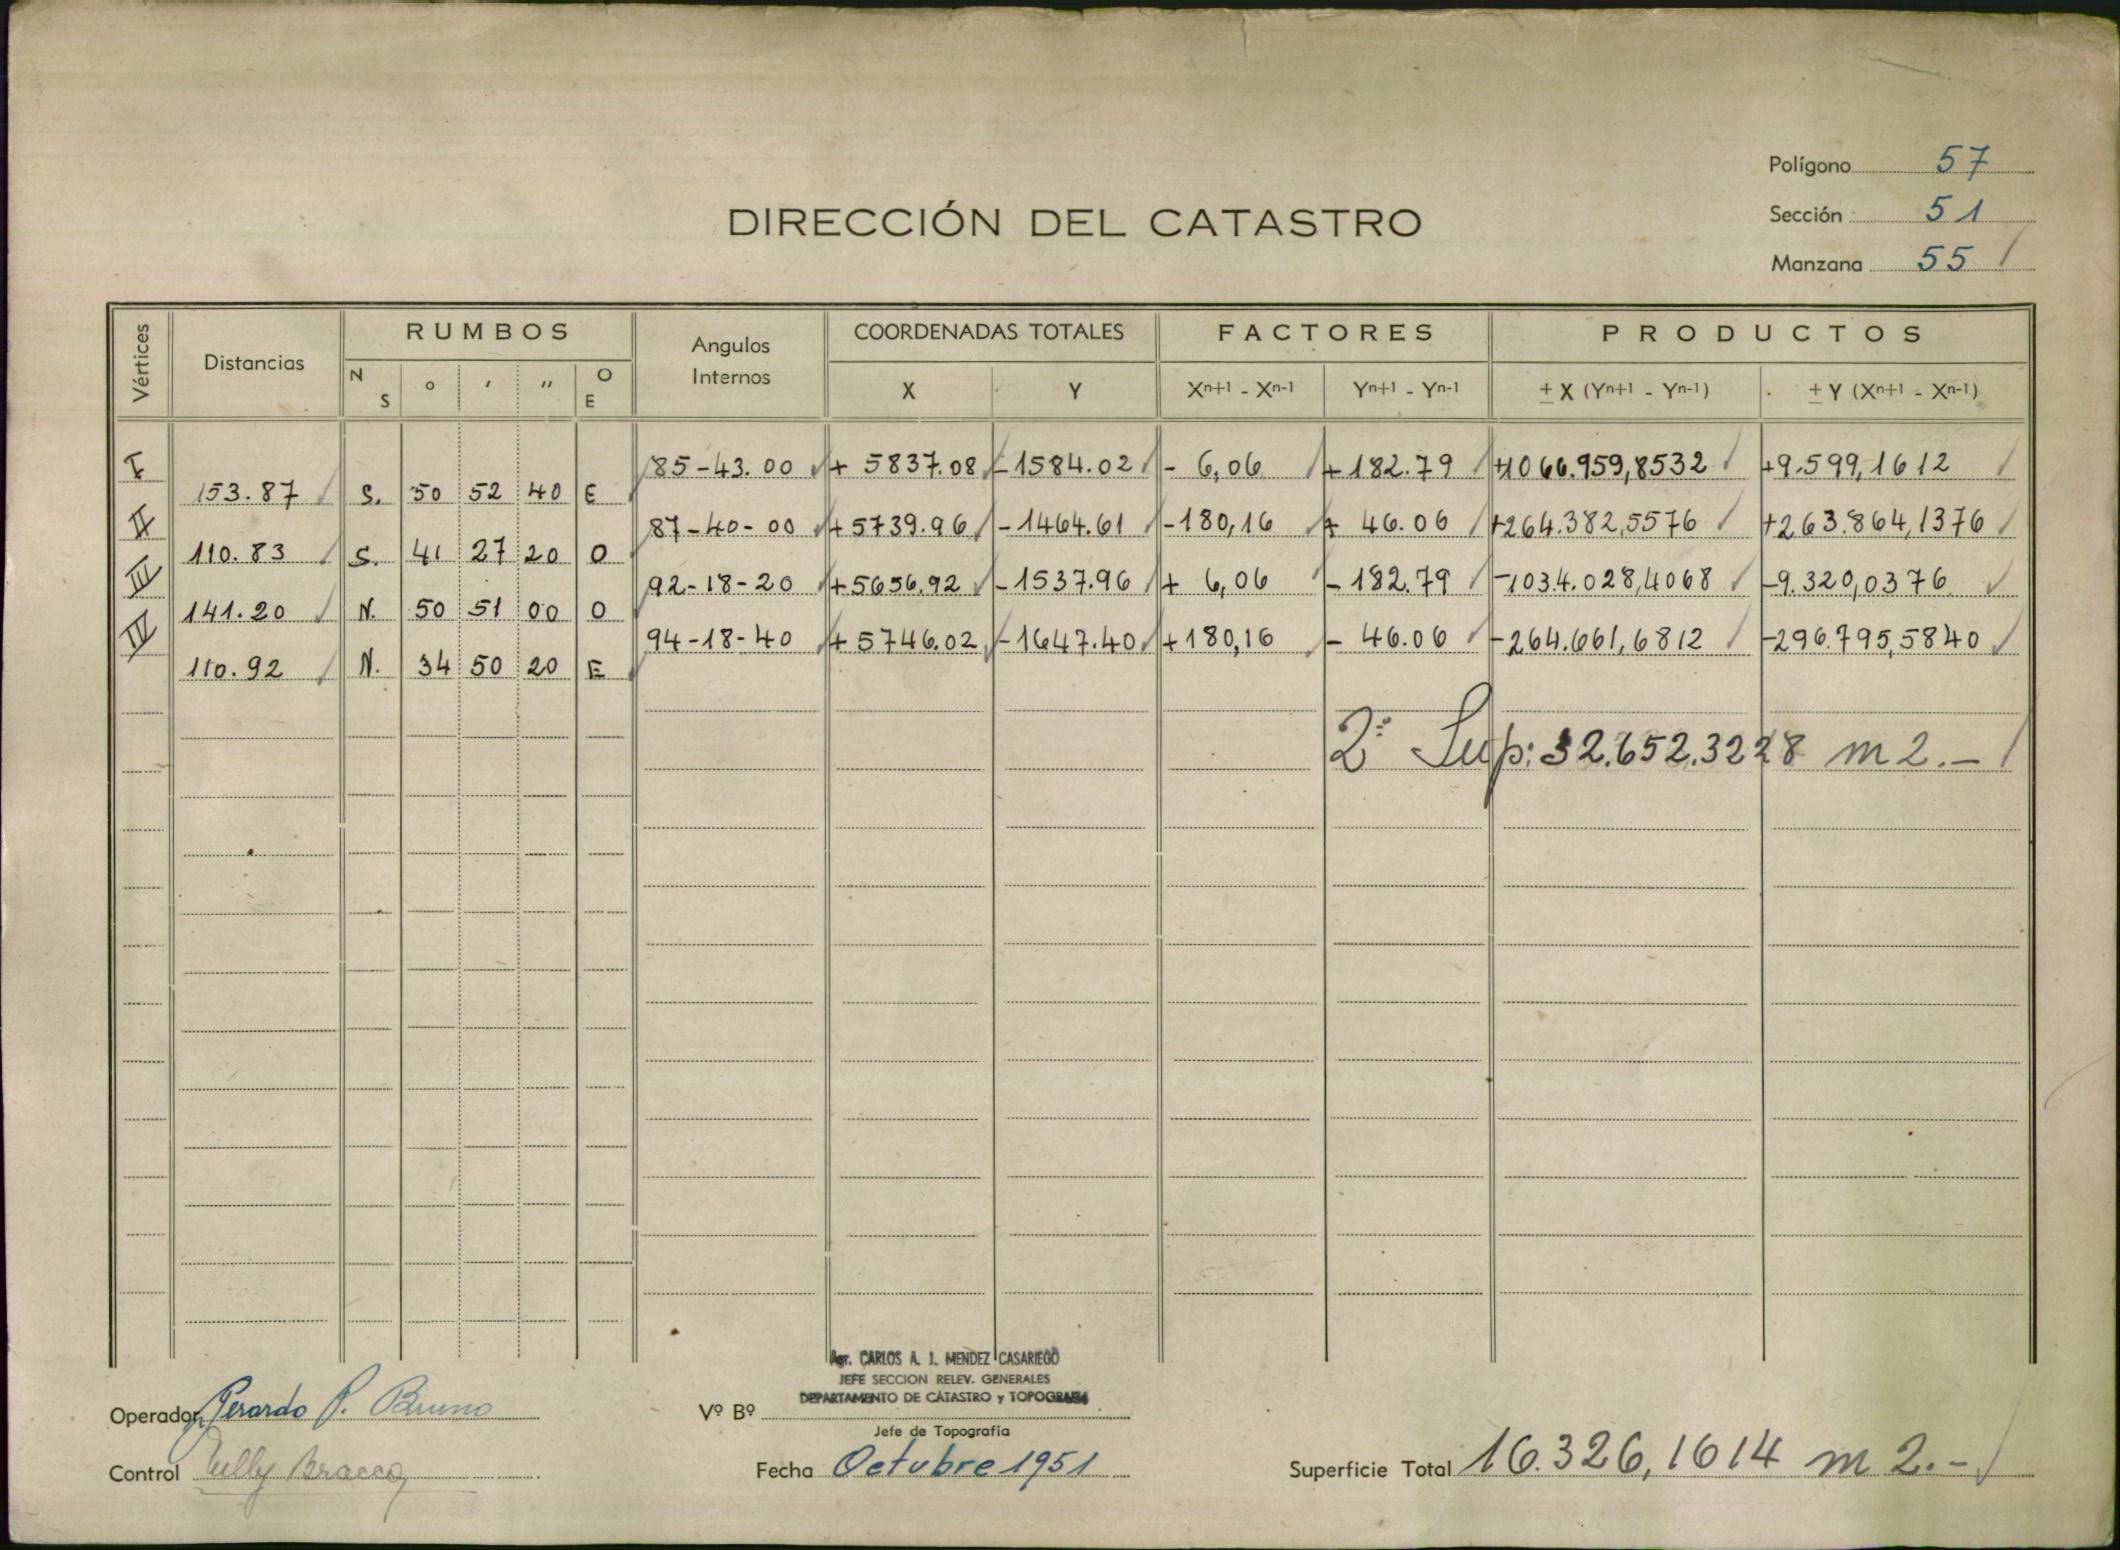 Polígono 57
DIRECCIÓN DEL CATASTRO
Sección 51
Manzana 55
Vértices Distancias RUMBOS Angulos Internos COORDENADAS TOTALES FACTORES PRODUCTOS
N S ° ' " O E X Y Xn+1 - Xn-1 Yn+1 - Yn-1 ± X (Yn+1 - Yn-1) ± Y (Xn+1 - Xn-1)
I 85-43.00 + 5837.08 -1584.02 - 6,06 +182.79 +1066.959,8532 +9.599,1612
153.87 S. 50 52 40 E
II 87-40-00 +5739.96 -1464.61 -180,16 + 46.06 +264.382,5576 +263.864,1376
110.83 S. 41 27 20 O
III 92-18-20 +5656,92 -1537.96 + 6,06 - 182.79 -1034.028,4068 -9.320,0376
141.20 N. 50 51 00 O
IV 94-18-40 +5746.02 -1647.40 +180,16 - 46.06 -264.661,6812 -296.795,5840
110.92 N. 34 50 20 E
2ª Sup: 32.652.3228 m2.-
Agr. CARLOS A. J. MENDEZ CASARIEGO
JEFE SECCION RELEV. GENERALES
DEPARTAMENTO DE CATASTRO y TOPOGRAFIA
Operador Gerardo P. Bruno
Vº Bº
Jefe de Topografía
Control Nelly Bracco
Fecha Octubre 1951
Superficie Total 16.326,1614 m2.-